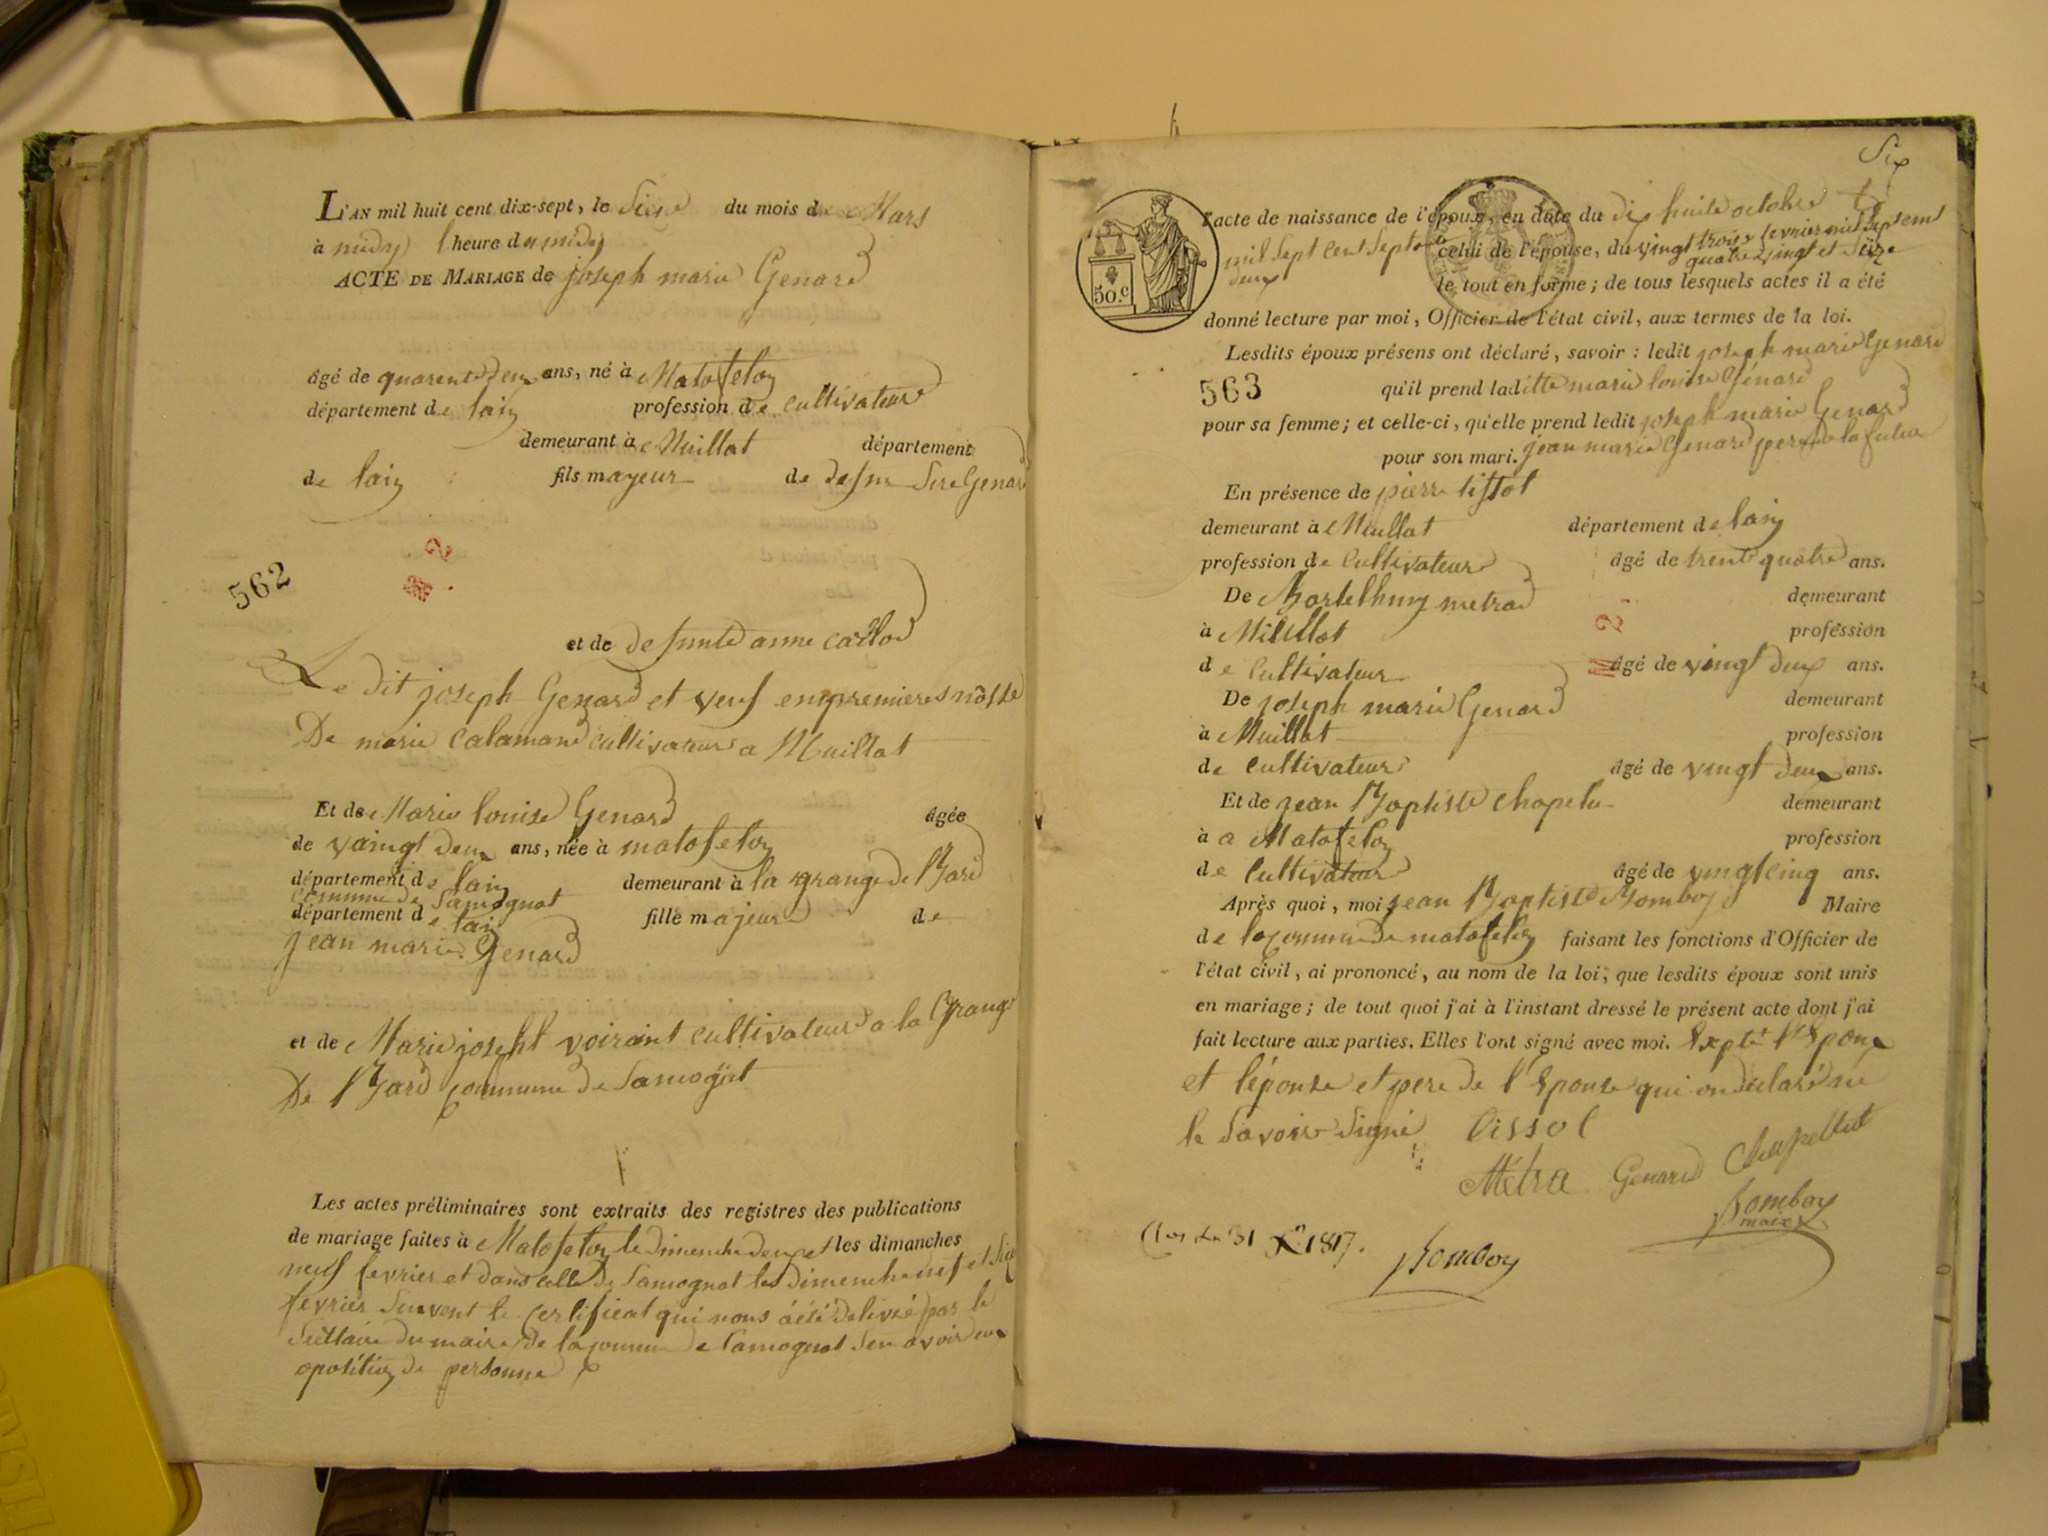 L'AN mil huit cent dix-sept, le du mois de Mars
à midy l'heure du midy
ACTE DE MARIAGE de joseph marie Genard
âgé de quarente deux ans, né à Matafelon
département de lain profession de cultivateur
demeurant à Nuillat département
de lain fils mayeur de defun Genard
562
et de defunte anne
Le dit joseph Genard et veuf en premieres nosse
De marie calamand cultivateur a Nuillat
Et de Marie louise Genard âgée
de vaingt deux ans, née à matafelon
département de lain demeurant à la grange de l'Jard
commune de Samognat
département de lain fille majeure de
jean marie Genard
et de Marie joseht voirant cultivateur a la Grange
De l'Jard Commune de Samognat
Les actes préliminaires sont extraits des registres des publications
de mariage faites à Matafelon le dimenche deux et les dimanches
neuf fevrier et dans celle de Samognat les dimenche neuf et
fevrier Suivent le Certificat qui nous a été delivré par le
du maire de la commune de Samognat
opositien de personne
Six
l'acte de naissance de l'époux, en date du dix huite octobre
mil sept cent septente celui de l'épouse, du vingt trois fevrier mil sept sent
deux quatre vingt et Seize
le tout en forme; de tous lesquels actes il a été
50.c
donné lecture par moi, Officier de l'état civil, aux termes de la loi.
Lesdits époux présens ont déclaré, savoir: ledit joseph marie Genard
563 qu'il prend laditte marie louise Génard
pour sa femme; et celle-ci, qu'elle prend ledit joseph marie Genard
pour son mari. jean marie Genard pere de la future
En présence de pierre tissot
demeurant à Nuillat département de lain
profession de Cultivateur âgé de trente quatre ans.
De Bartelhmy metrad demeurant
à profession
de Cultivateur âgé de vingt deux ans.
De joseph marie Genard demeurant
à Nuillat profession
de cultivateur âgé de vingt deux ans.
Et de jean Baptiste chapelu demeurant
à a Matafelon profession
de Cultivateur âgé de vingt cinq ans.
Après quoi, moi jean Baptiste Bomboy Maire
de la Commune de matafelon faisant les fonctions d'Officier de
l'état civil, ai prononcé, au nom de la loi, que lesdits époux sont unis
en mariage; de tout quoi j'ai à l'instant dressé le présent acte dont j'ai
fait lecture aux parties. Elles l'ont signé avec moi. Expté l'Epoux
et l'épouse et pere de l'Epouse qui on déclaré ne
le Savoir Signé tissot
Métra Genard Chapellut
Bomboy
maire
Clos le 31 Xre 1817.
Bomboy